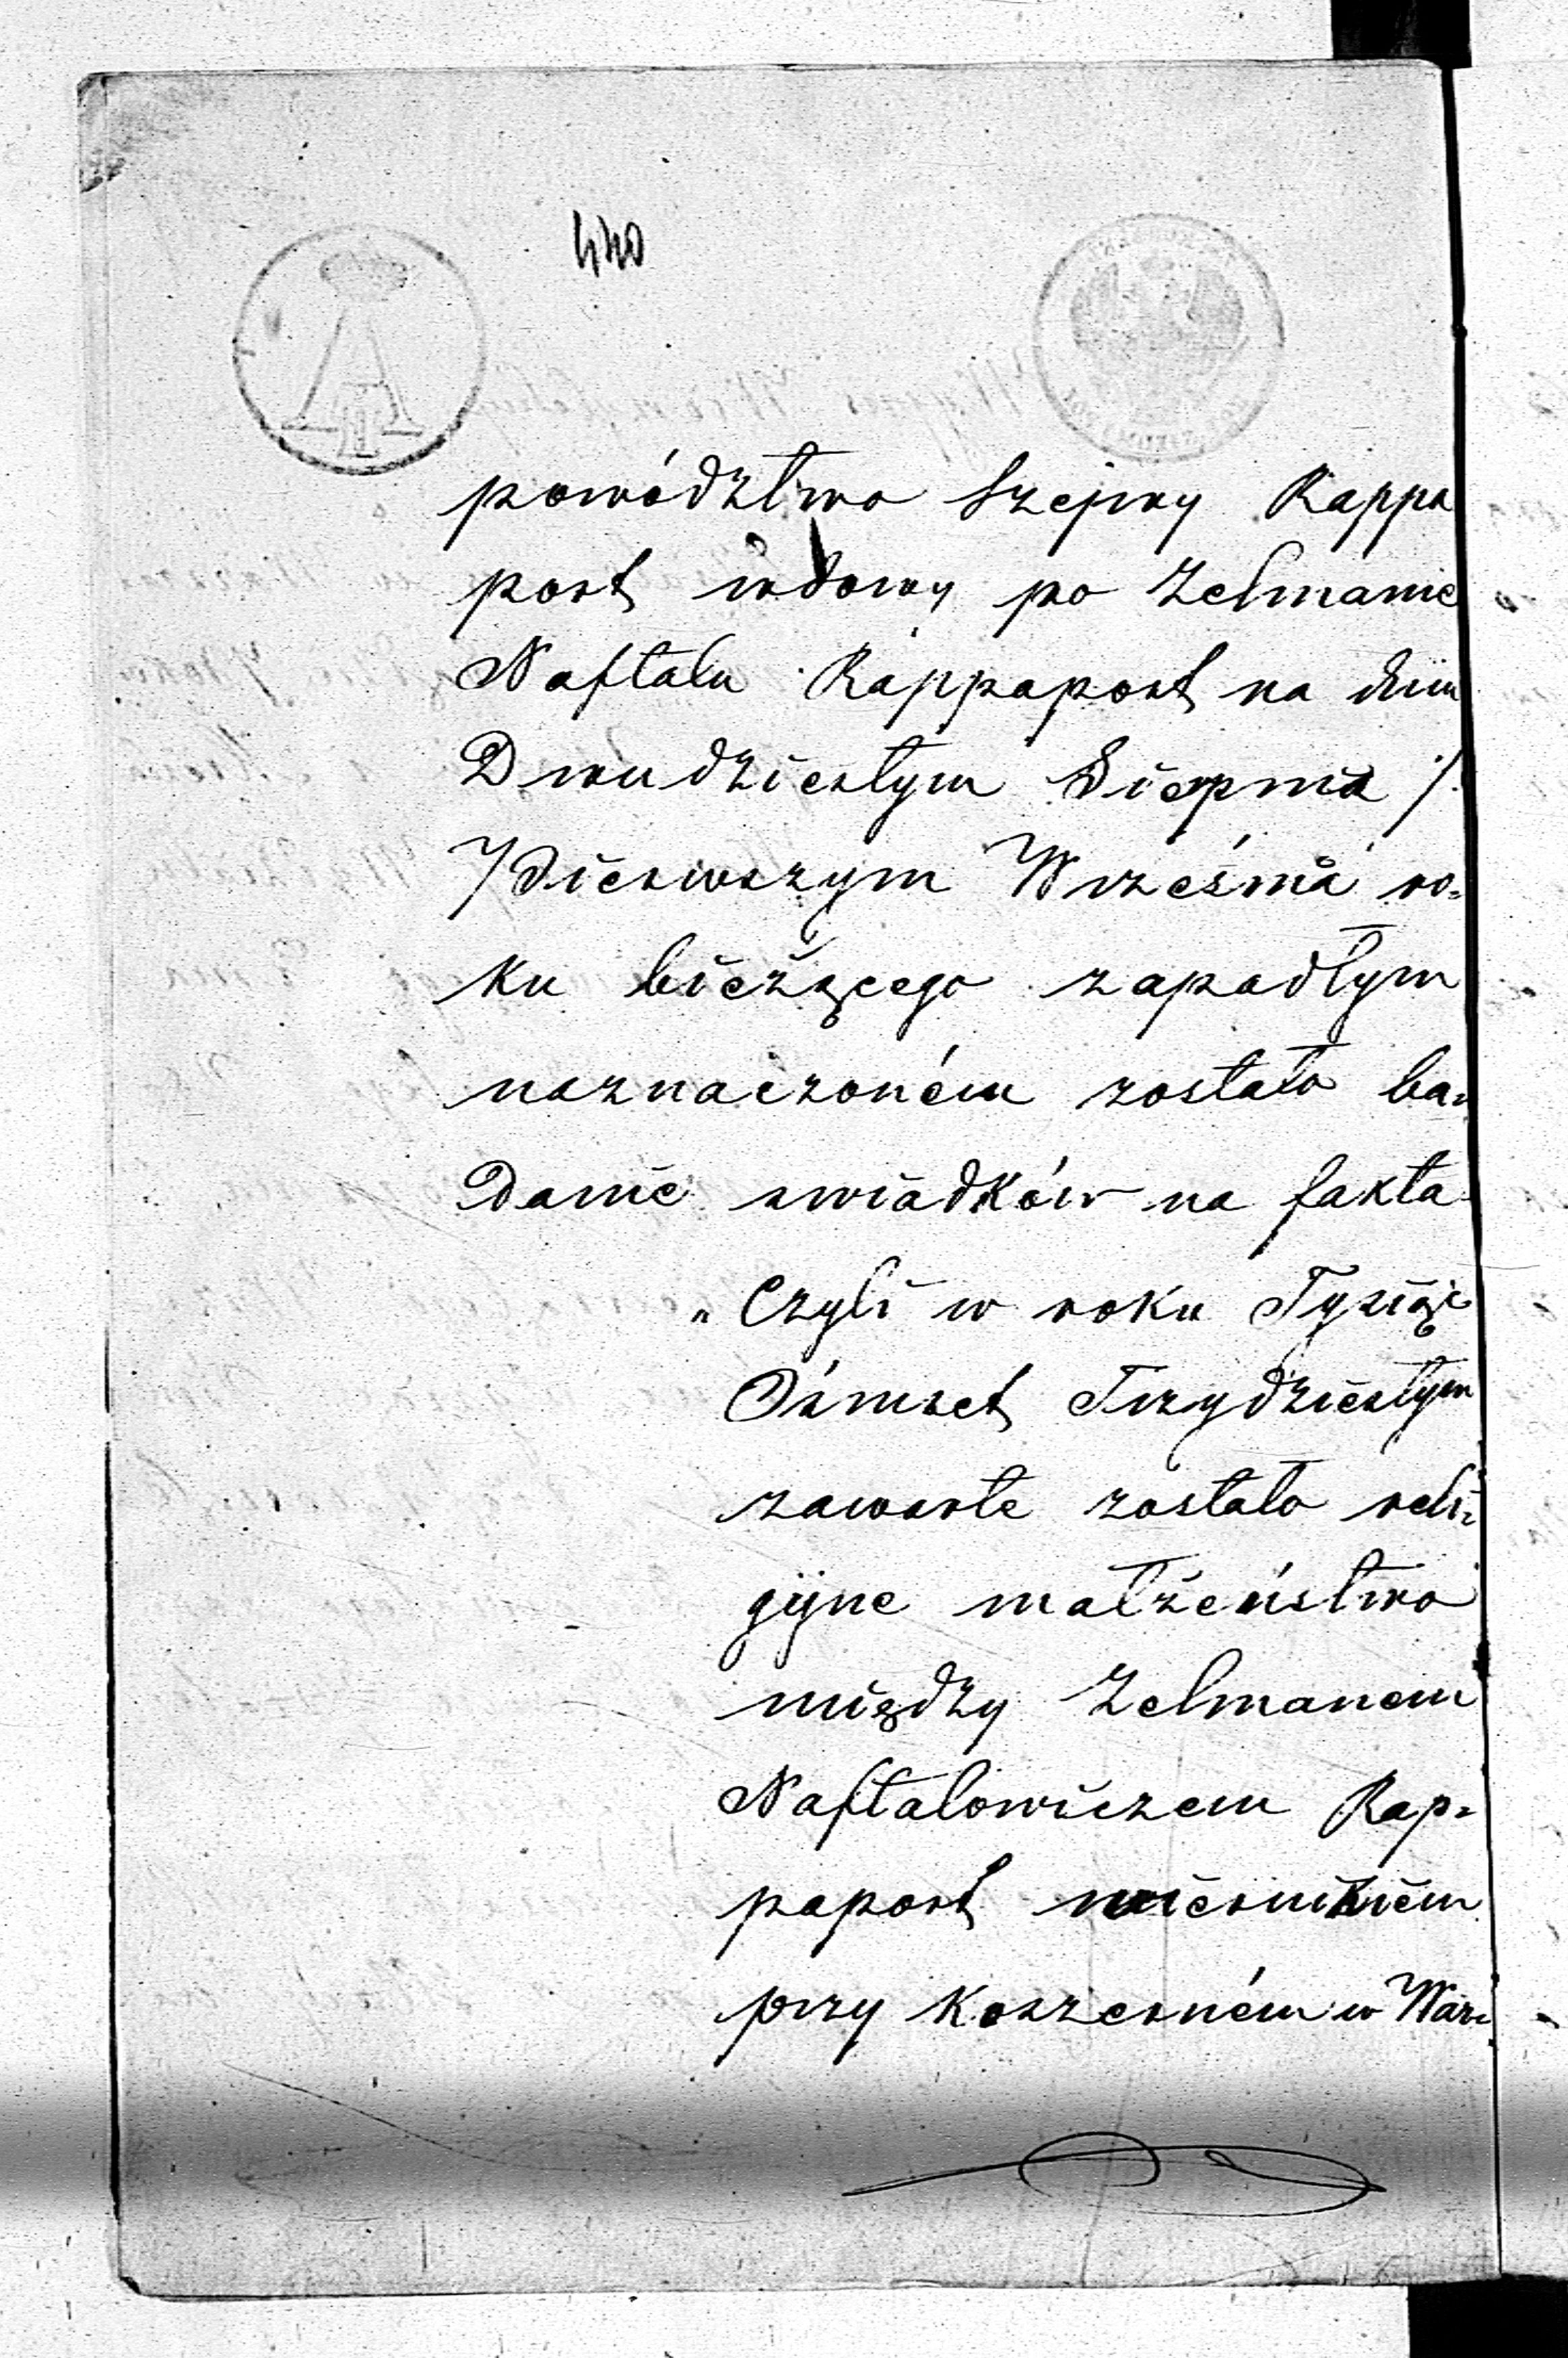 440
powództwo Szejwy Rappa
port wdowy po Zelmanie
Naftalu Rappaport na dniu
Dwudziestym Sierpnia /
/ Pierwszym Września ro=
ku bieżącego zapadłym
naznaczoném zostało ba=
danie swiadków na fakta
„ Czyli w roku Tysiąc
Ośmset Trzydziestym
zawarte zostało reli=
gijne małżeństwo
między Zelmanem
Naftalowiczem Rap=
paport
przy Koszerném w War=